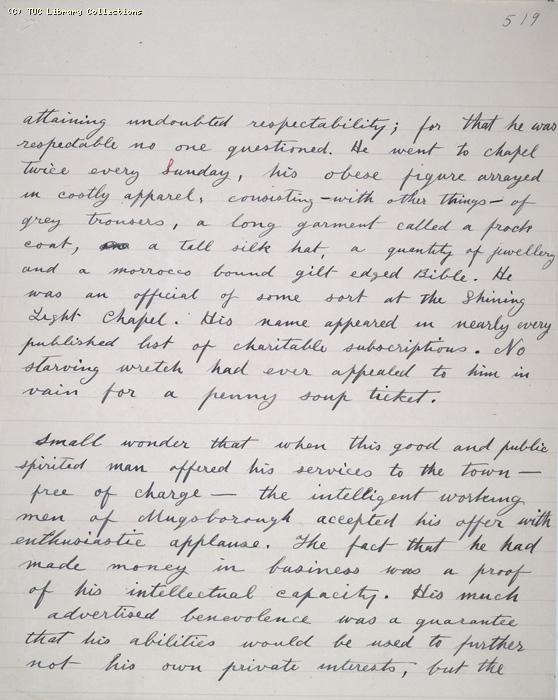 (C) TUC Library Collections
519
attaining undoubted respectability; for that he was
respectable no one questioned. He went to chapel
twice every Sunday, his obese figure arrayed
in costly apparel, consisting - with other things - of
grey trousers, a long garment called a frock
coat, a tall silk hat, a quantity of jewellery
and a morrocco bound gilt edged Bible. He
was an official of some sort at the Shining
Light Chapel. His name appeared in nearly every
published list of charitable subscriptions. No
starving wretch had ever appealed to him in
vain for a penny soup ticket.
Small wonder that when this good and public
spirited man offered his services to the town —
free of charge — the intelligent working
men of Mugsborough accepted his offer with
enthusiastic applause. The fact that he had
made money in business was a proof
of his intellectual capacity. His much
advertised benevolence was a guarantee
that his abilities would be used to further
not his own private interests, but the